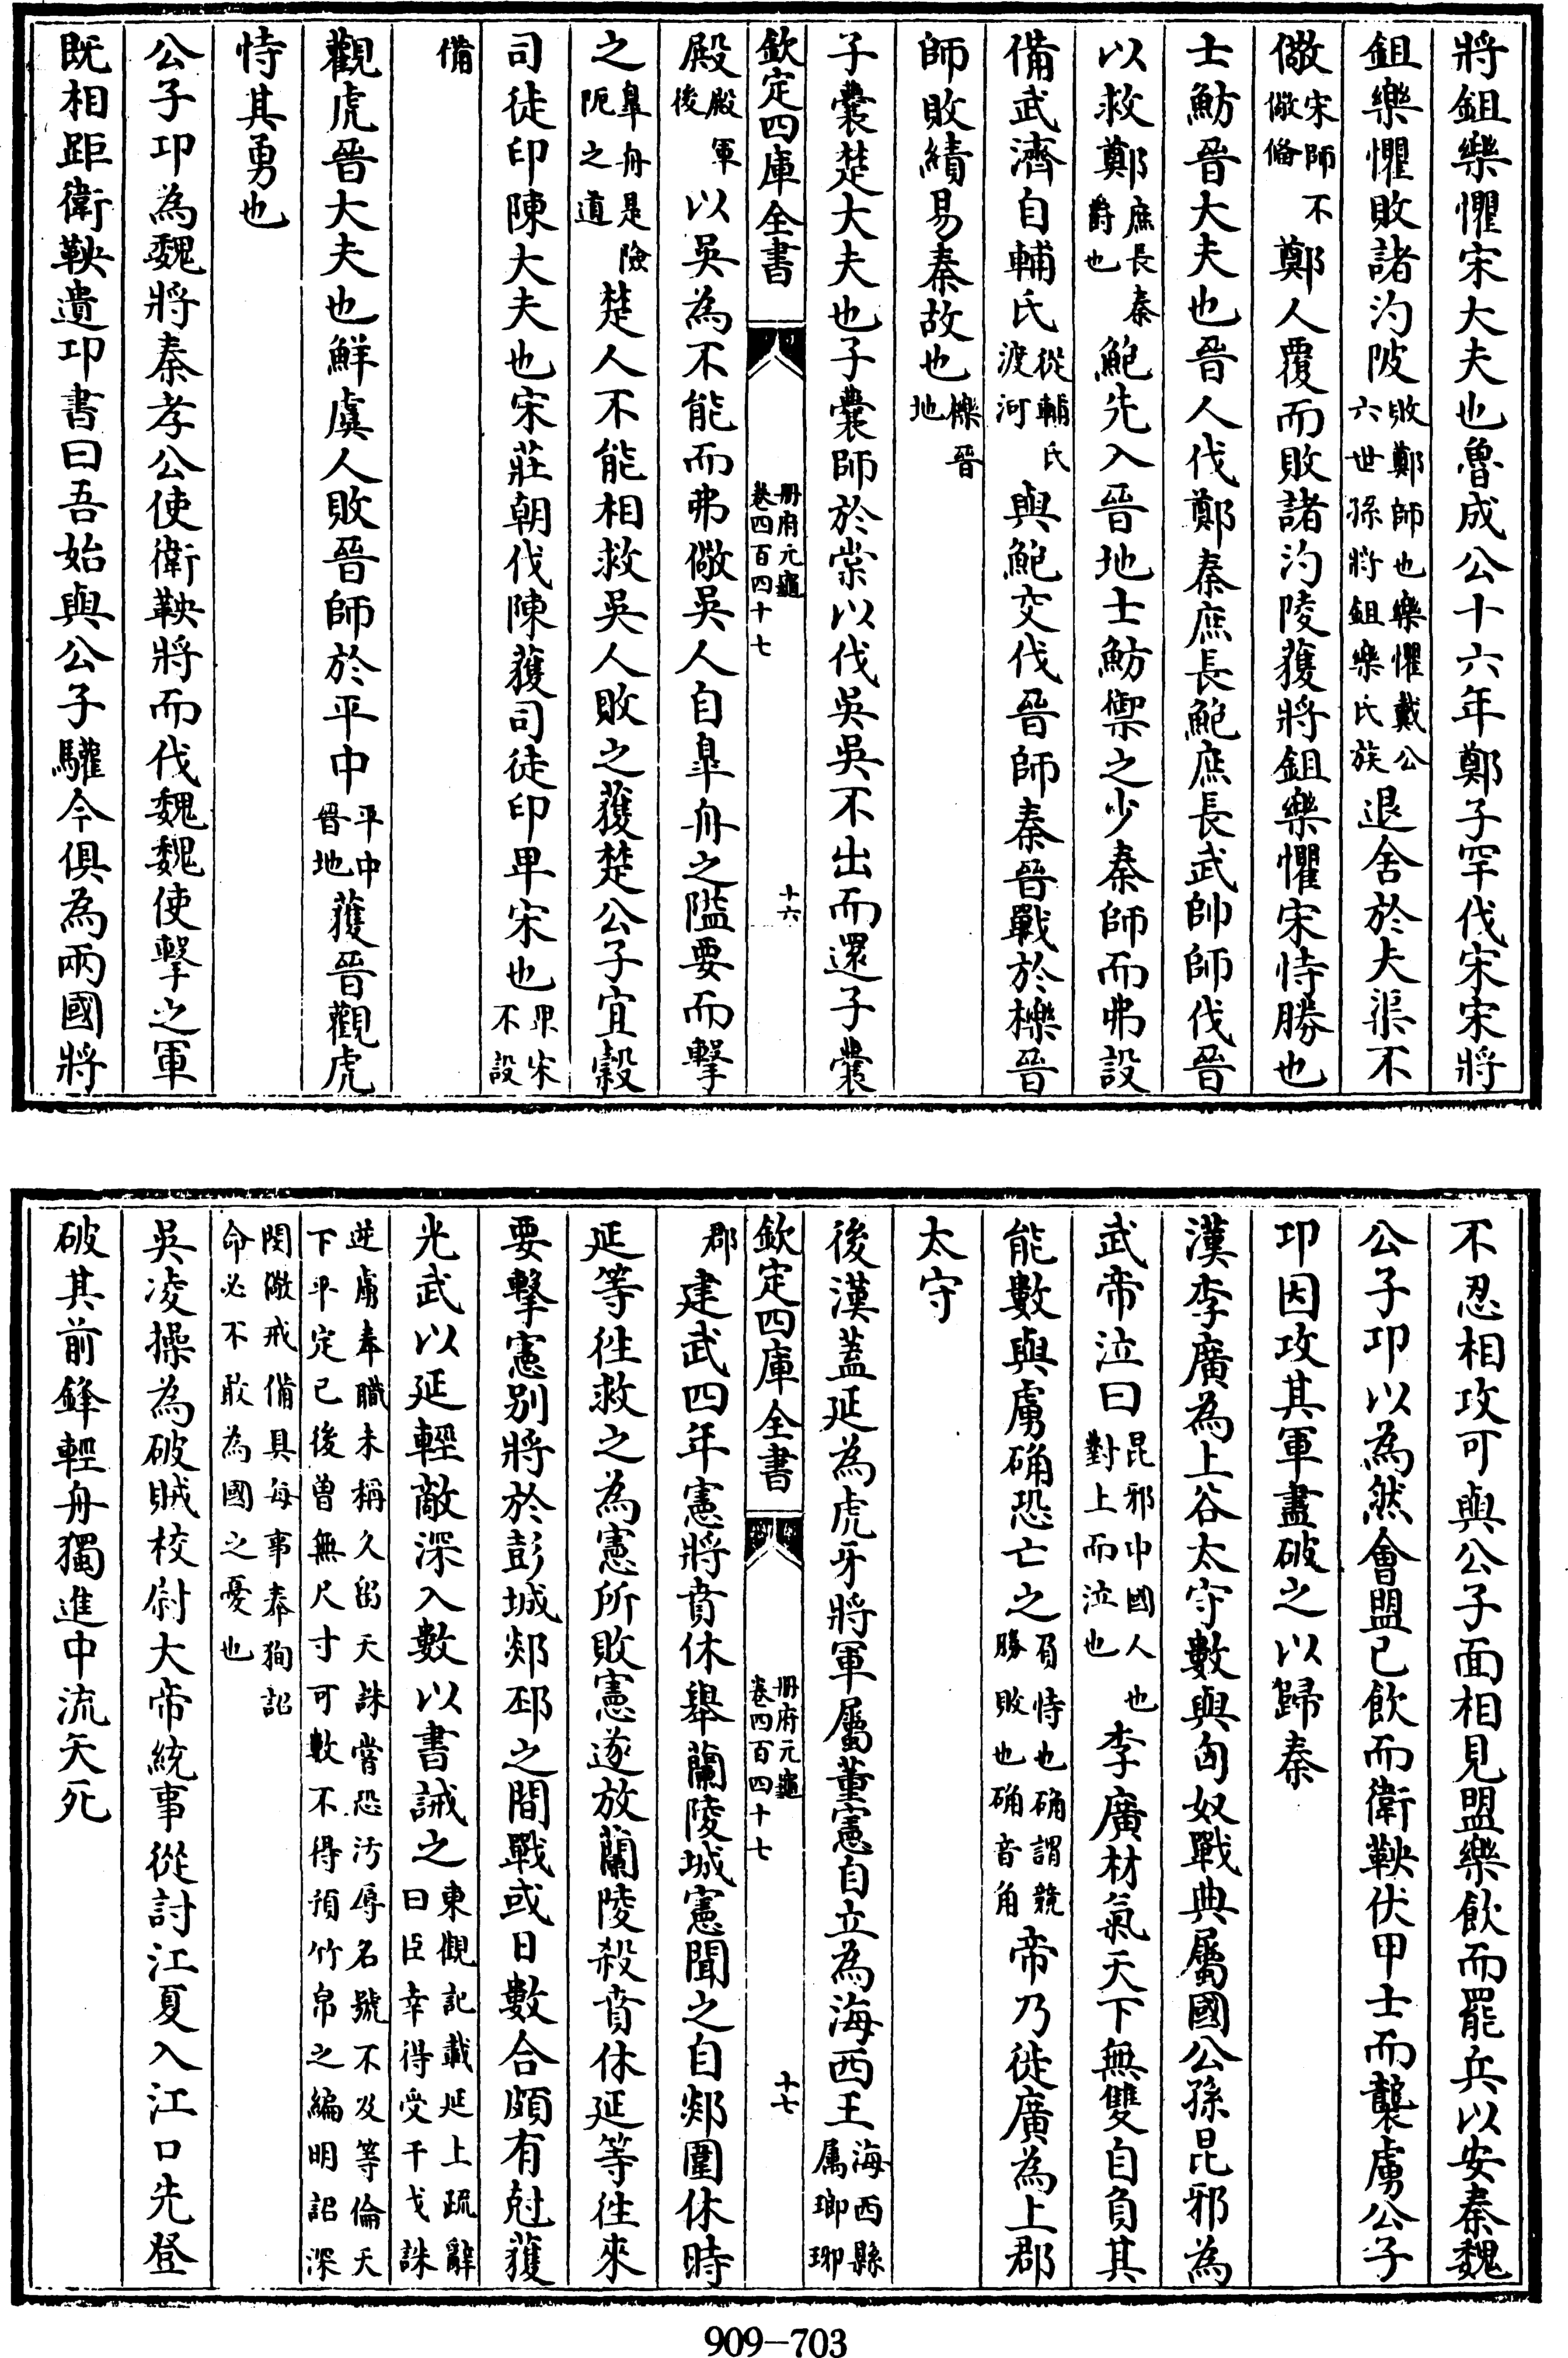 將鉏樂懼宋大夫也魯成公十六年鄭子罕伐宋宋將
鉏樂懼敗諸汋陂敗鄭師也樂懼戴公六世孫將鉏樂氏族退舍於夫渠不
儆宋師不儆備鄭人覆而敗諸汋陵獲將鉏樂懼宋恃勝也
士魴晉大夫也晉人伐鄭秦庶長鮑庶長武帥師伐晉
以救鄭庶長秦爵也鮑先入晉地士魴禦之少秦師而弗設
備武濟自輔氏從輔氏渡河與鮑交伐晉師秦晉戰於櫟晉
師敗績易秦故也櫟晉地
子囊楚大夫也子囊師於棠以伐吳吳不出而還子囊
欽定四庫全書 冊府元龜卷四百四十七 十六
殿殿軍後以吳為不能而弗儆吳人自皐舟之隘要而擊
之皐舟是險阨之道楚人不能相救吳人敗之獲楚公子宜穀
司徒卬陳大夫也宋莊朝伐陳獲司徒卬卑宋也卑宋不設
備
觀虎晉大夫也鮮虞人敗晉師於平中平中晉地獲晉觀虎
恃其勇也
公子卬為魏將秦孝公使衛鞅將而伐魏魏使擊之軍
既相距衛鞅遺卬書曰吾始與公子驩今俱為兩國將
不忍相攻可與公子面相見盟樂飲而罷兵以安秦魏
公子卬以為然會盟已飲而衛鞅伏甲士而襲虜公子
卬因攻其軍盡破之以歸秦
漢李廣為上谷太守數與匈奴戰典屬國公孫昆邪為
武帝泣曰昆邪中國人也對上而泣也李廣材氣天下無雙自負其
能數與虜确恐亡之負恃也确謂競勝敗也确音角帝乃徙廣為上郡
太守
後漢蓋延為虎牙將軍屬董憲自立為海西王海西縣属瑯琊
欽定四庫全書 冊府元龜卷四百四十七 十七
郡建武四年憲將賁休舉蘭陵城憲聞之自郯圍休時
延等徃救之為憲所敗憲遂放蘭陵殺賁休延等徃來
要擊憲别將於彭城郯邳之間戰或日數合頗有尅獲
光武以延輕敵深入數以書誡之東觀記載延上疏辭曰臣幸得受干戈誅
逆虜奉職未稱久留天誅嘗恐汚辱名號不及等倫天下平定已後曽無尺寸可數不得預竹帛之編明詔深
閔儆戒備具每事奉狥詔命必不敢為國之憂也
吳凌操為破賊校尉大帝統事從討江夏入江口先登
破其前鋒輕舟獨進中流矢死
909-703